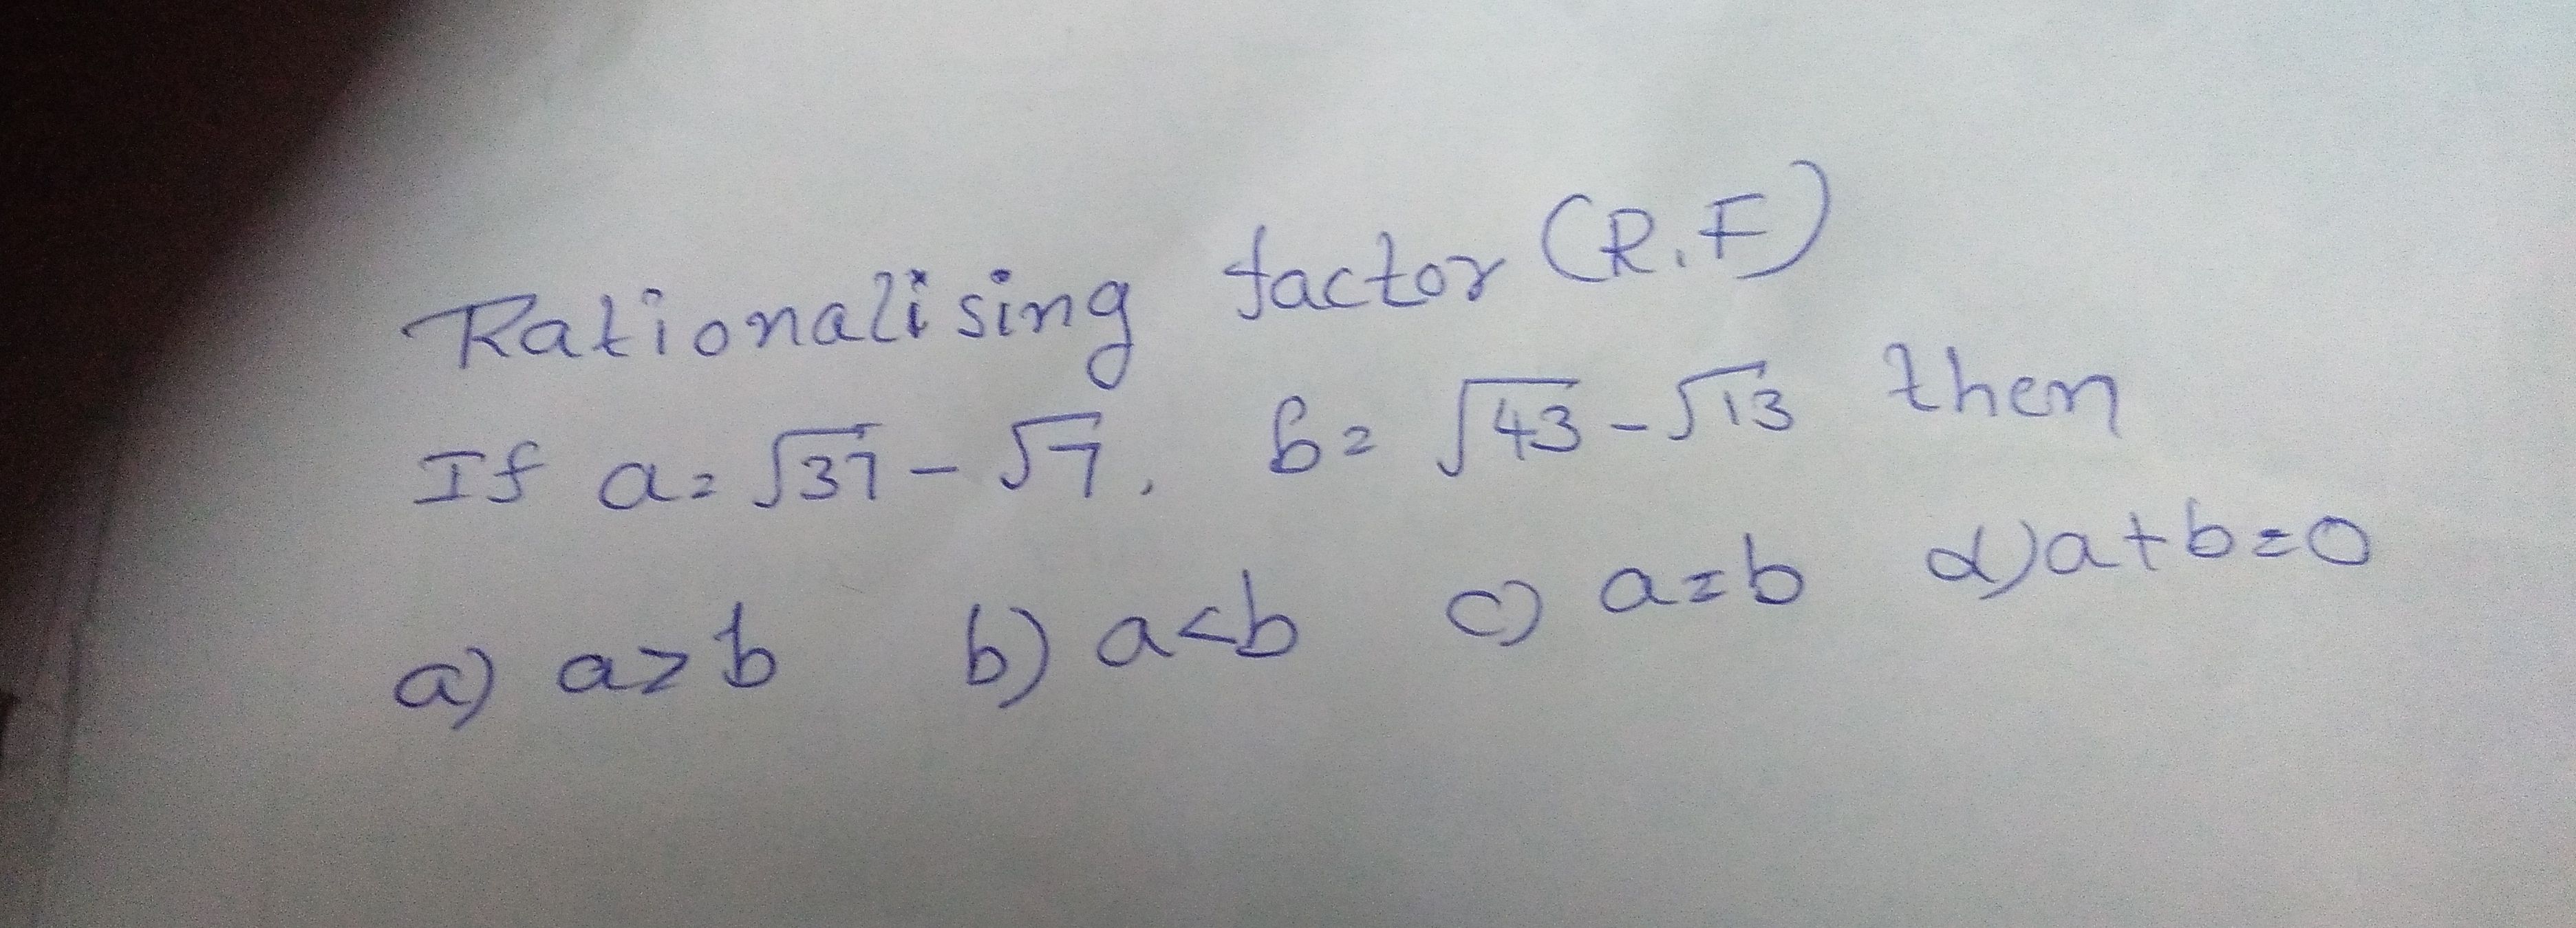 Rationalising factor (R.F)
If a = √37 - √7, b = √43 - √13 then
a) a > b b) a < b c) a = b d) a + b = 0